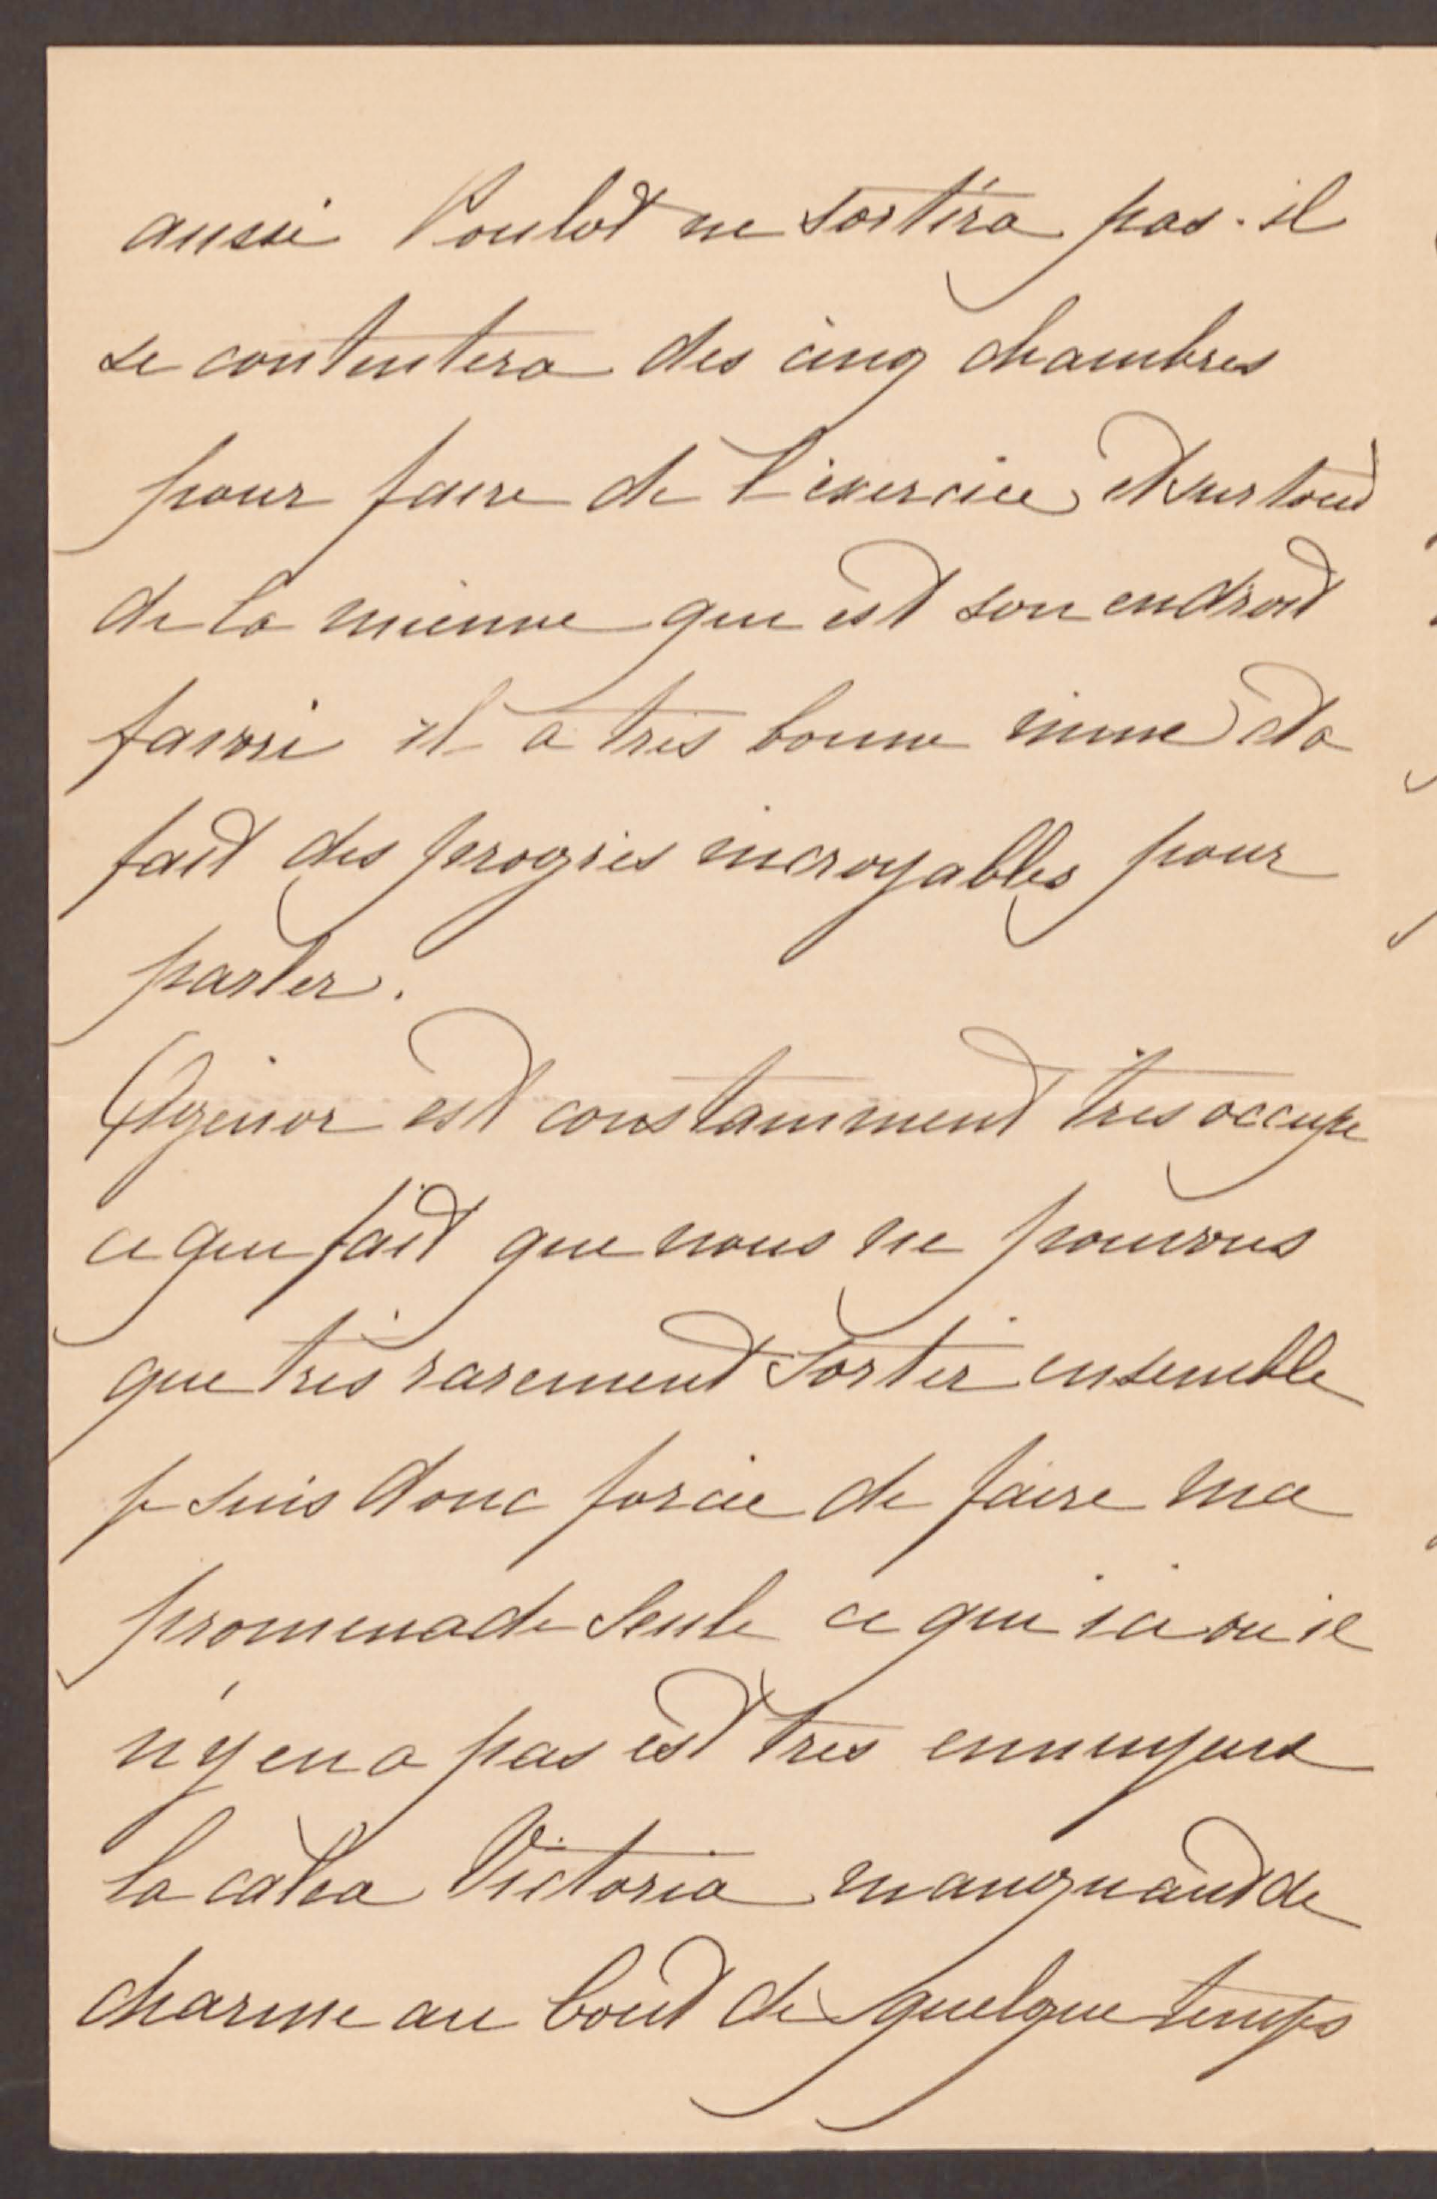 aussi Poulot ne sortira pas. il
se contentera des cinq chambres
pour faire de l'exercice et surtout
de la mienne qui est son endroit
favori il a très bonne mine et a
fait des progrès incroyables pour
parler.
Agenor est constamment très occupé
ce qui fait que nous ne pouvons
que très rarement sortir ensemble
je suis donc forcée de faire ma
promenade seule ce qui ici où il
n'y en a pas est très ennuyeux
la calea Victoria manquant de
charme au bout de quelque temps